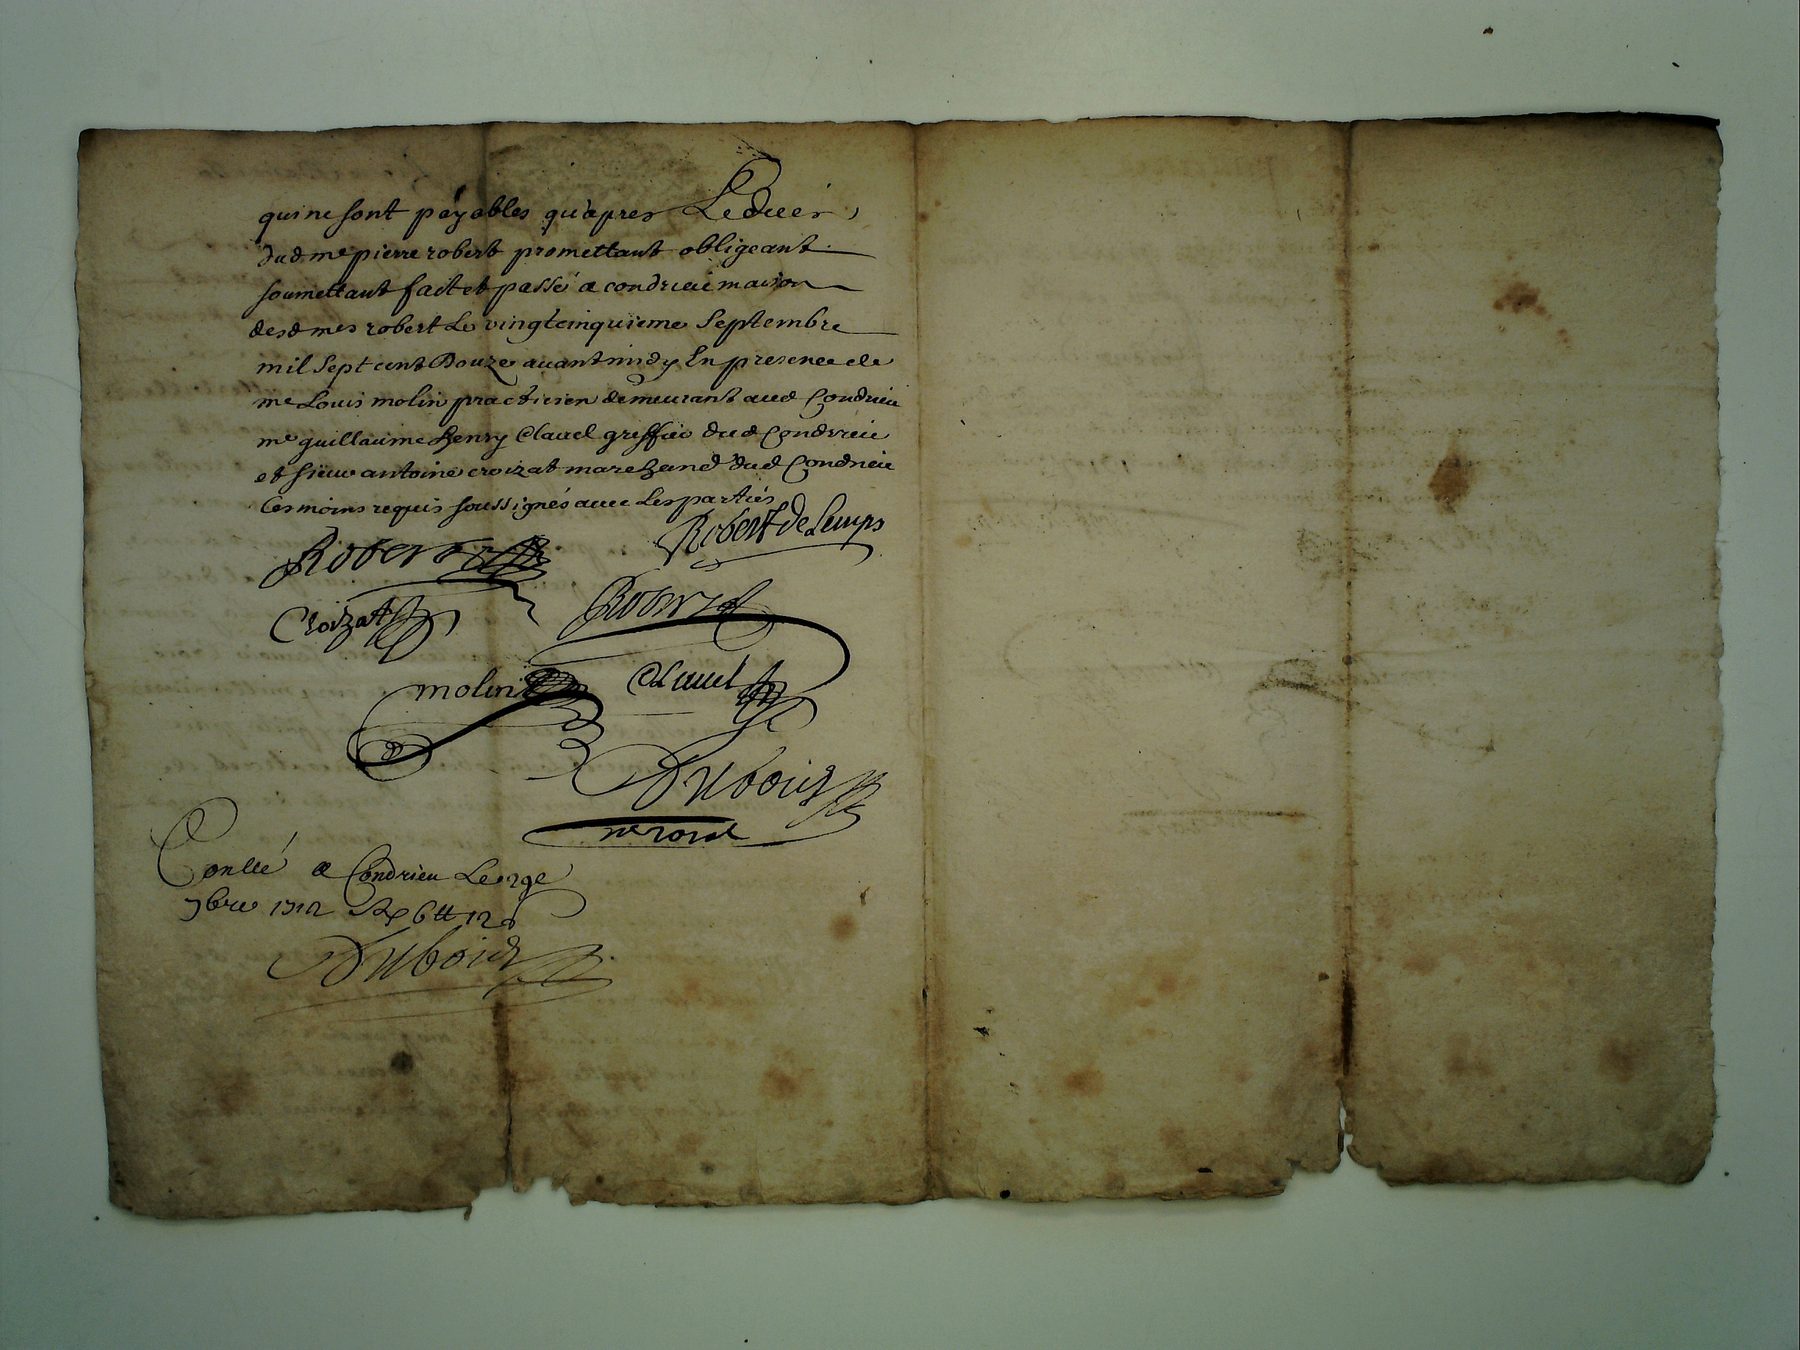 qui ne sont payables qu'apres Le decés
dud me pierre robert promettant obligeant
soumettant fait et passé a condrieu maison
desd mes robert Le vingtcinquieme Septembre
mil Sept cent Douze avant midy En presence de
me Louis molin practicien demeurant aud Condrieu
me guillaume henry Clavel greffier dud Condrieu
et sieur antoine croizat marchand dud Condrieu
tesmoins requis soussignés avec Les parties
Robert de Lemps
Robert
Croizat
Robert
molin
Clavel
Dubois
nre royal
Conllé a Condrieu Le 29e
7bre 1712
Dubois